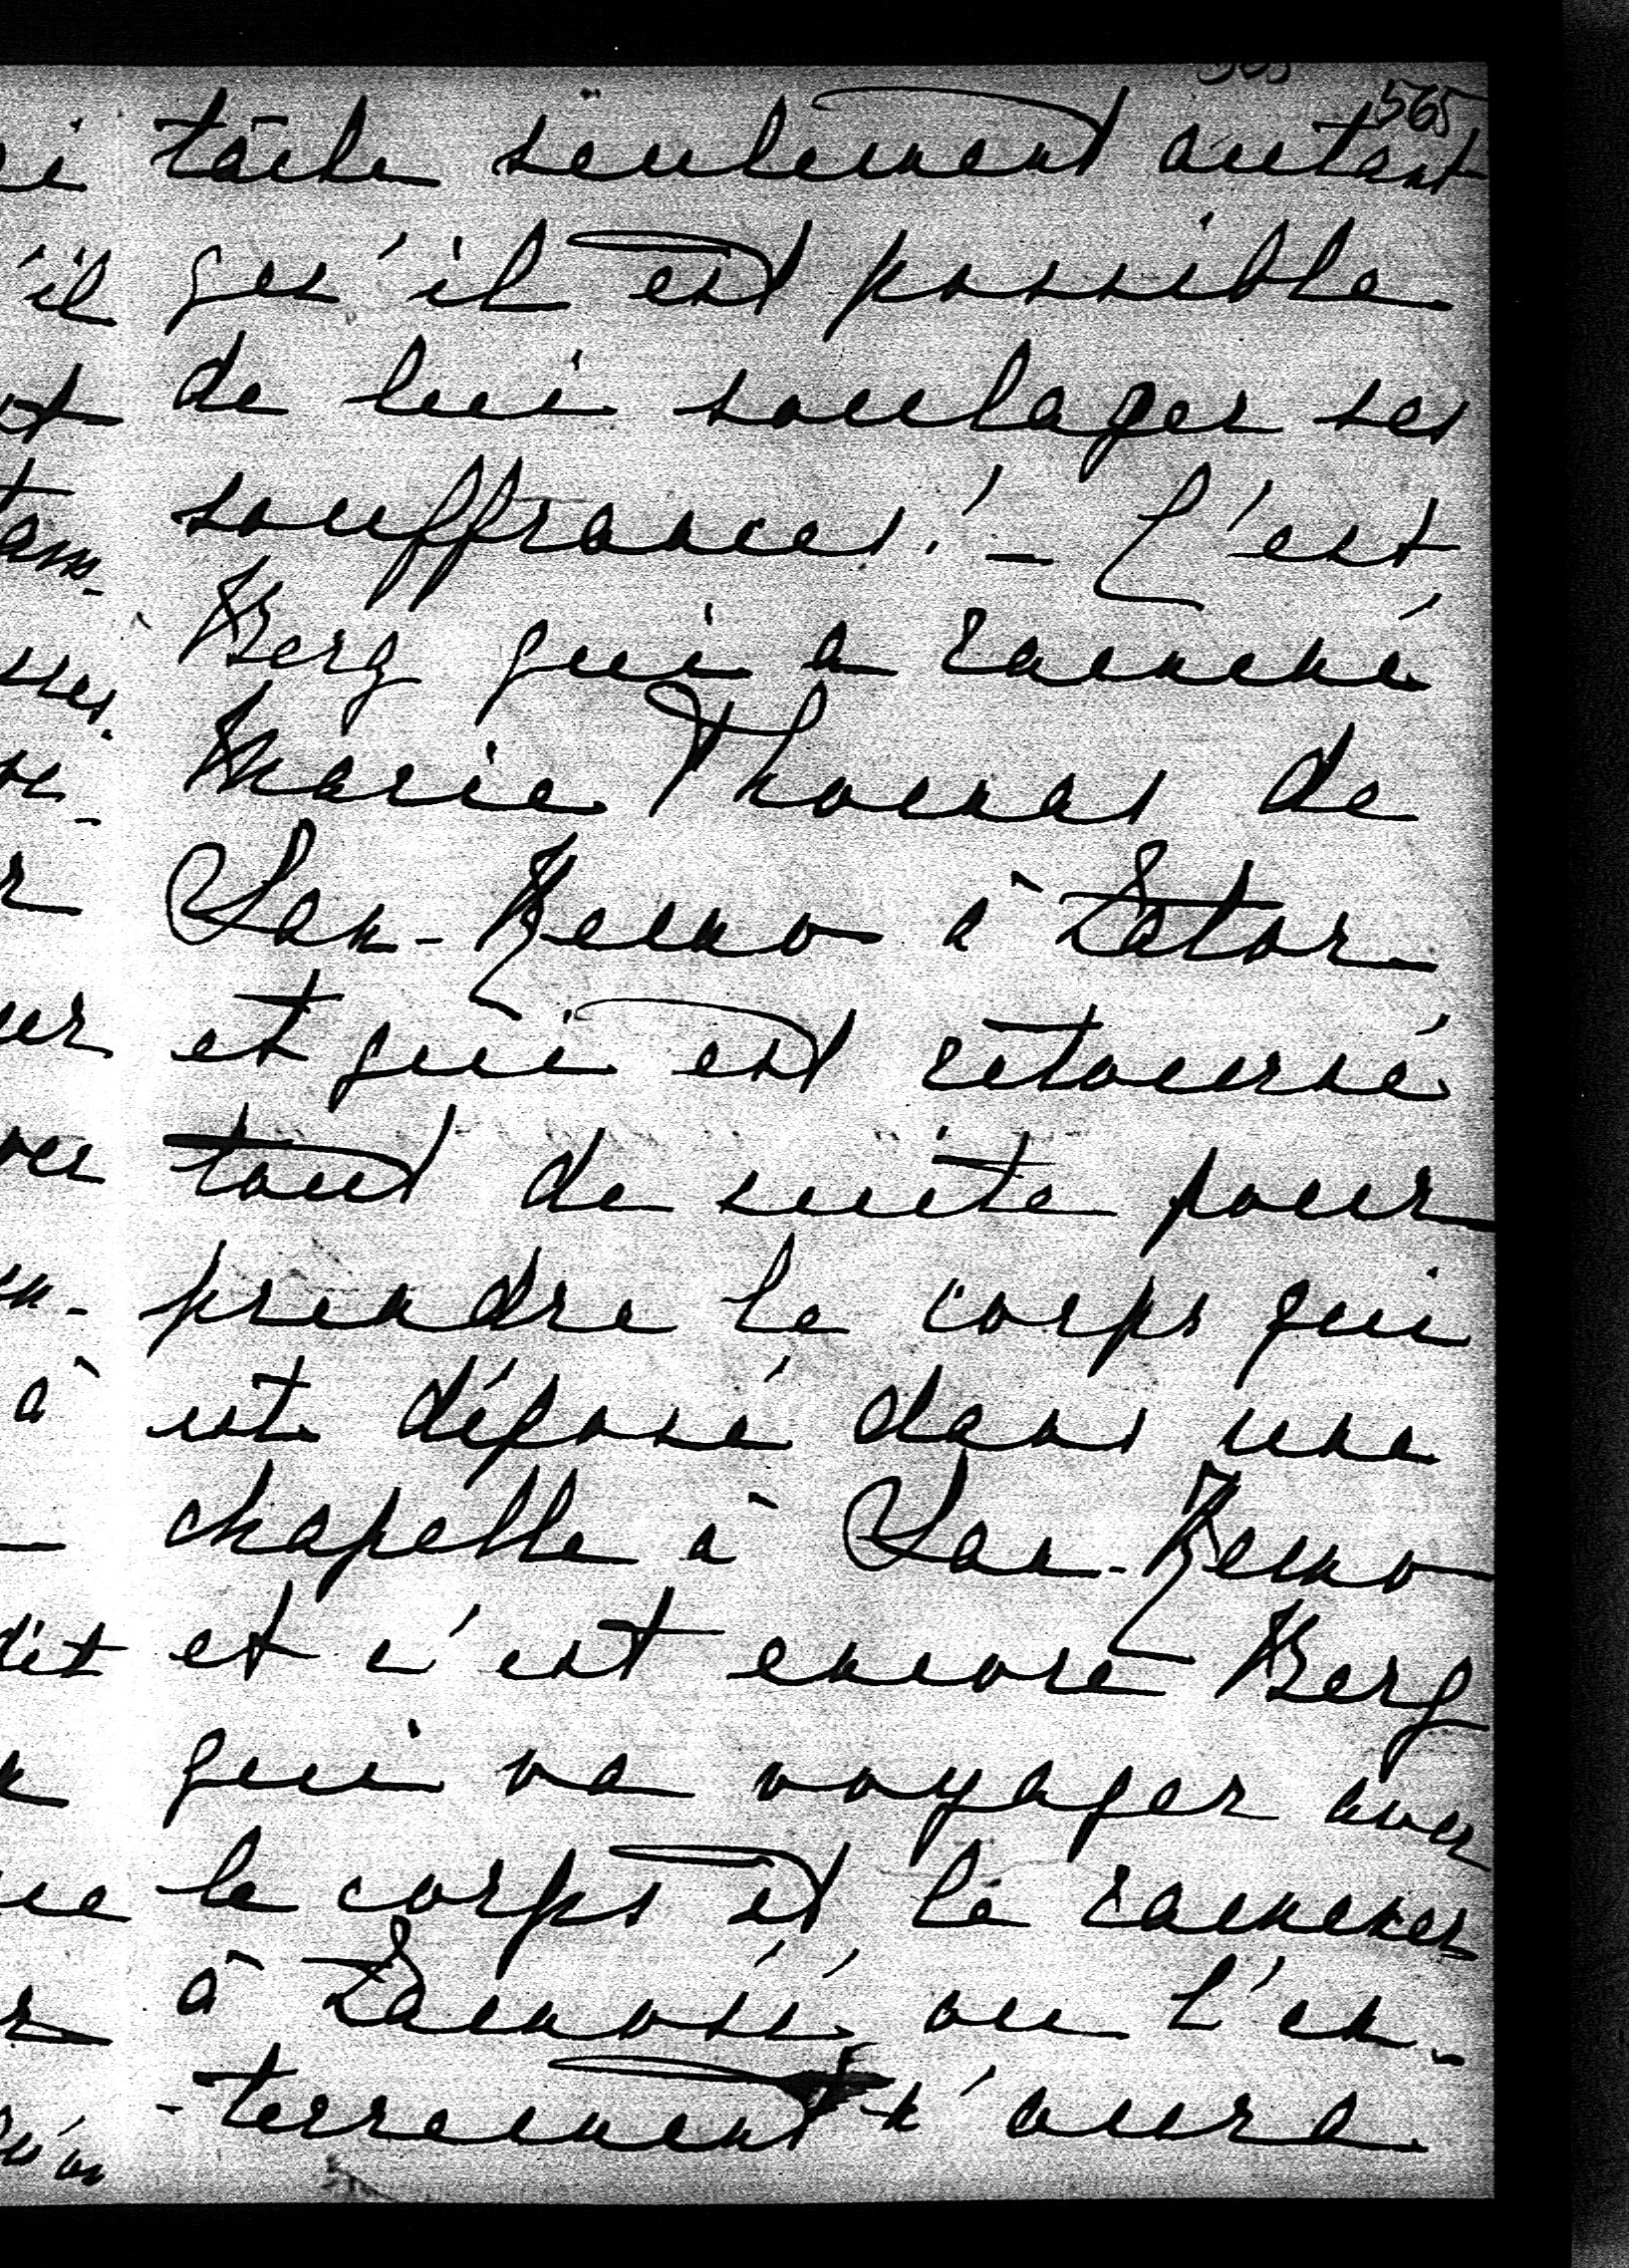 565
tâche seulement autant
qu'il est possible
de lui soulager ses
souffrances! – C'est
Berg qui a ramené
Marie Thomas de
San-Remo à Zator
et qui est retourné
tout de suite pour
prendre le corps qui
est déposé dans une
chapelle à San-Remo
et c'est encore Berg
qui va voyager avec
le corps et le ramener
à où l'en-
-terrement n'aura